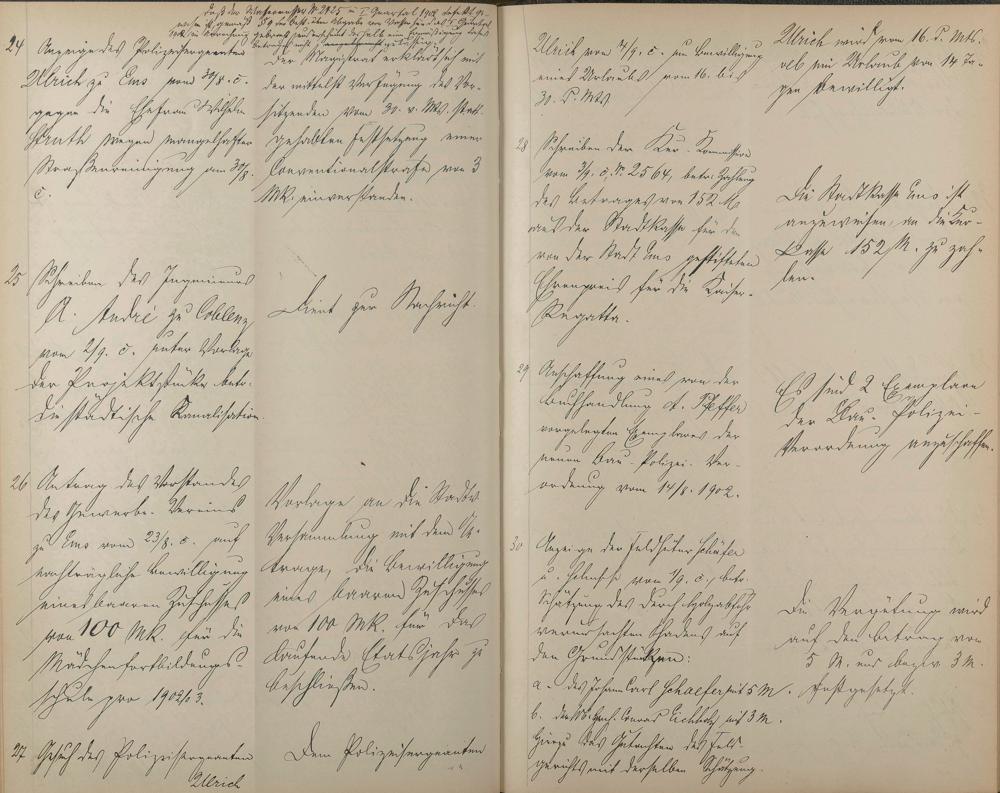 24 Anzeige des Polizeisergeanten
Ulrich zu Ems vom 30/8. c.
gegen die Ehefrau Wilhelm
wegen mangelhafter
Straßenreinigung am 30/8.
c.
Der Magistrat erklärt sich mit
der mittelst Verfügung des Vor-
sitzenden vom 30. v. Mts. statt-
gehabten Festsetzung einer
Conventionalstrafe von 3
Mk. einverstanden.
25 Schreiben des Ingenieurs
A. André zu Coblenz
vom 2/9. c. unter Vorlage
der Projektstücke betr.
die städtische Kanalisation.
Dient zur Nachricht.
26 Antrag des Vorstandes
des Gewerbe-Vereins
zu Ems vom 23/8. c. auf
nachträgliche Bewilligung
eines baaren Zuschusses
von 100 Mk. für die
Mädchenfortbildungs-
schule pro 1902/03.
Vorlage an die Stadtv.
Versammlung mit dem An-
trage, die Bewilligung
eines baaren Zuschusses
von 100 Mk. für das
laufende Etatsjahr zu
beschließen.
27 Gesuch des Polizeisergeanten
Ulrich
Dem Polizeisergeanten
Ulrich vom 4/9. c. um Bewilligung
eines Urlaubs vom 16. bis
30. d. Mts
Ulrich wird vom 16. d. Mts.
ab ein Urlaub von 14 Ta-
gen bewilligt.
28 Schreiben der Kur-Kommission
vom 3/9. c. Nr. 2564, betr. Zahlung
des Betrages von 152 M
aus der Stadtkasse für den
von der Stadt Ems gestifteten
Ehrenpreis für die Kaiser-
Regatta.
Die Stadtkasse Ems ist
anzuweisen, an die Kur-
kasse 152 M. zu zah-
len.
29 Anschaffung eines von der
Buchhandlung A. Pfeffer
vorgelegten Exemplares der
neuen Bau-Polizei-Ver-
ordnung vom 14/8. 1902.
Es sind 2 Exemplare
der Bau-Polizei-
Verordnung anzuschaffen.
30 Anzeige der Feldhüter Schäfer
u. vom 1/9. c., betr.
Schätzung des durch Holzabfuhr
verursachten Schadens auf
den Grundstücken:
a. des Johann Carl Schaefer mit 5 M.
b. des Conrad Eichholz mit 3 M.
Hierzu das Gutachten des Feld-
gerichts mit derselben Schätzung.
Die Vergütung wird
auf den Betrag von
5 M. und bezw. 3 M.
festgesetzt.